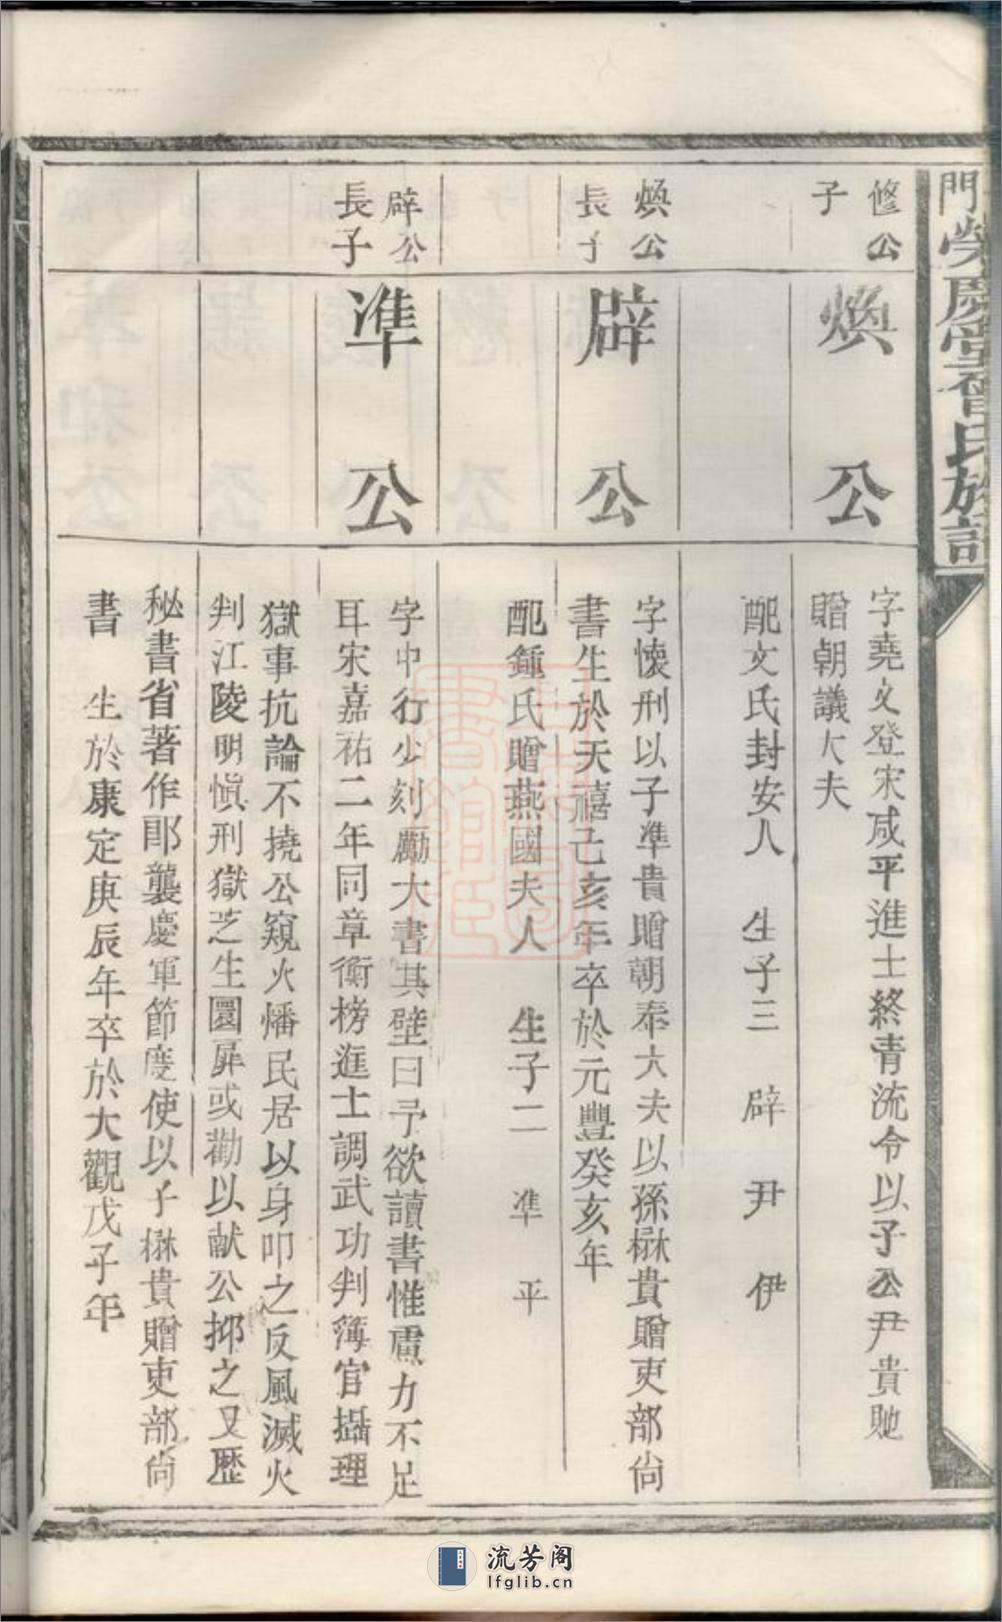 門榮慶堂曾氏族譜
修公
子
煥公
字堯文登宋咸平進士終青流令以子公尹貴貤
贈朝議大夫
配文氏封安人 生子三 辟 尹 伊
煥公
長子
辟公
字懷刑以子準貴贈朝奉大夫以孫楙貴贈吏部尚
書生於天禧己亥年卒於元豐癸亥年
配鍾氏贈燕國夫人 生子二 準 平
辟公
長子
準公
字中行少刻勵大書其壁曰予欲讀書惟慮力不足
耳宋嘉祐二年同章衡榜進士調武功判簿官攝理
獄事抗論不撓公窺火燔民居以身叩之反風滅火
判江陵明慎刑獄芝生圜扉或勸以獻公抑之又歷
秘書省著作郎襲慶軍節度使以子楙貴贈吏部尚
書 生於康定庚辰年卒於大觀戊子年
流芳阁
lfglib.cn